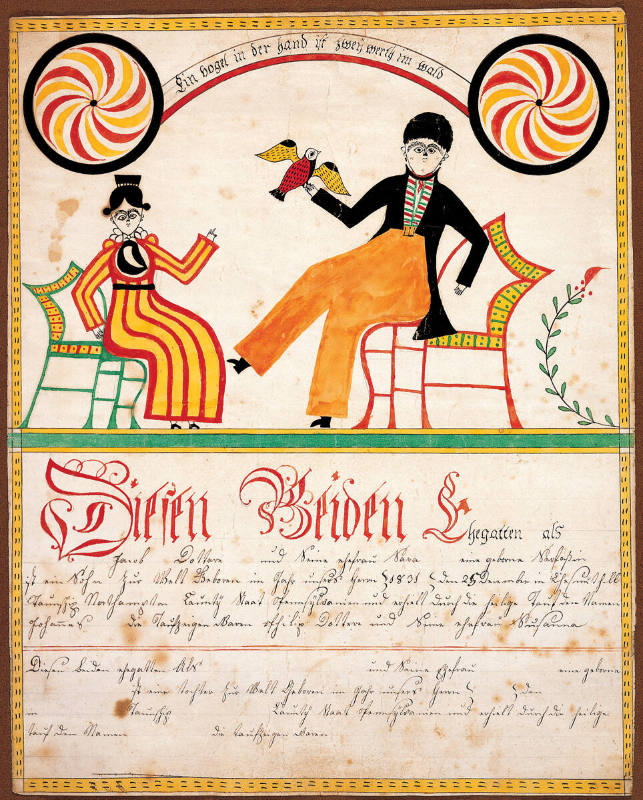 Ein vogel in der hand ist zwey werth im wald
Diesen Beiden Ehegatten als
Jacob Dottere und Seine ehefrau Sara eine geborne
ist ein Sohn zur Welt Geboren im Jahr unsers Herrn 1831 den 25 December in Chesnuthill
Taunschip Northhampton Caunty Staat Pennsylvanien und erhielt durch die heilige Taufe den Namen
Johannes die Taufzeugen Waren Philip Dottere und Seine ehefrau Susanna
Diesen beiden ehegatten Als und Seine Ehefrau eine geborne
ist eine tochter zur Welt Geboren im Jahr unsers Herrn den
in Taunschip Caunty Staat Pennsylvanien und erhielt durch die heilige
tauf den Namen die taufzeugen Waren